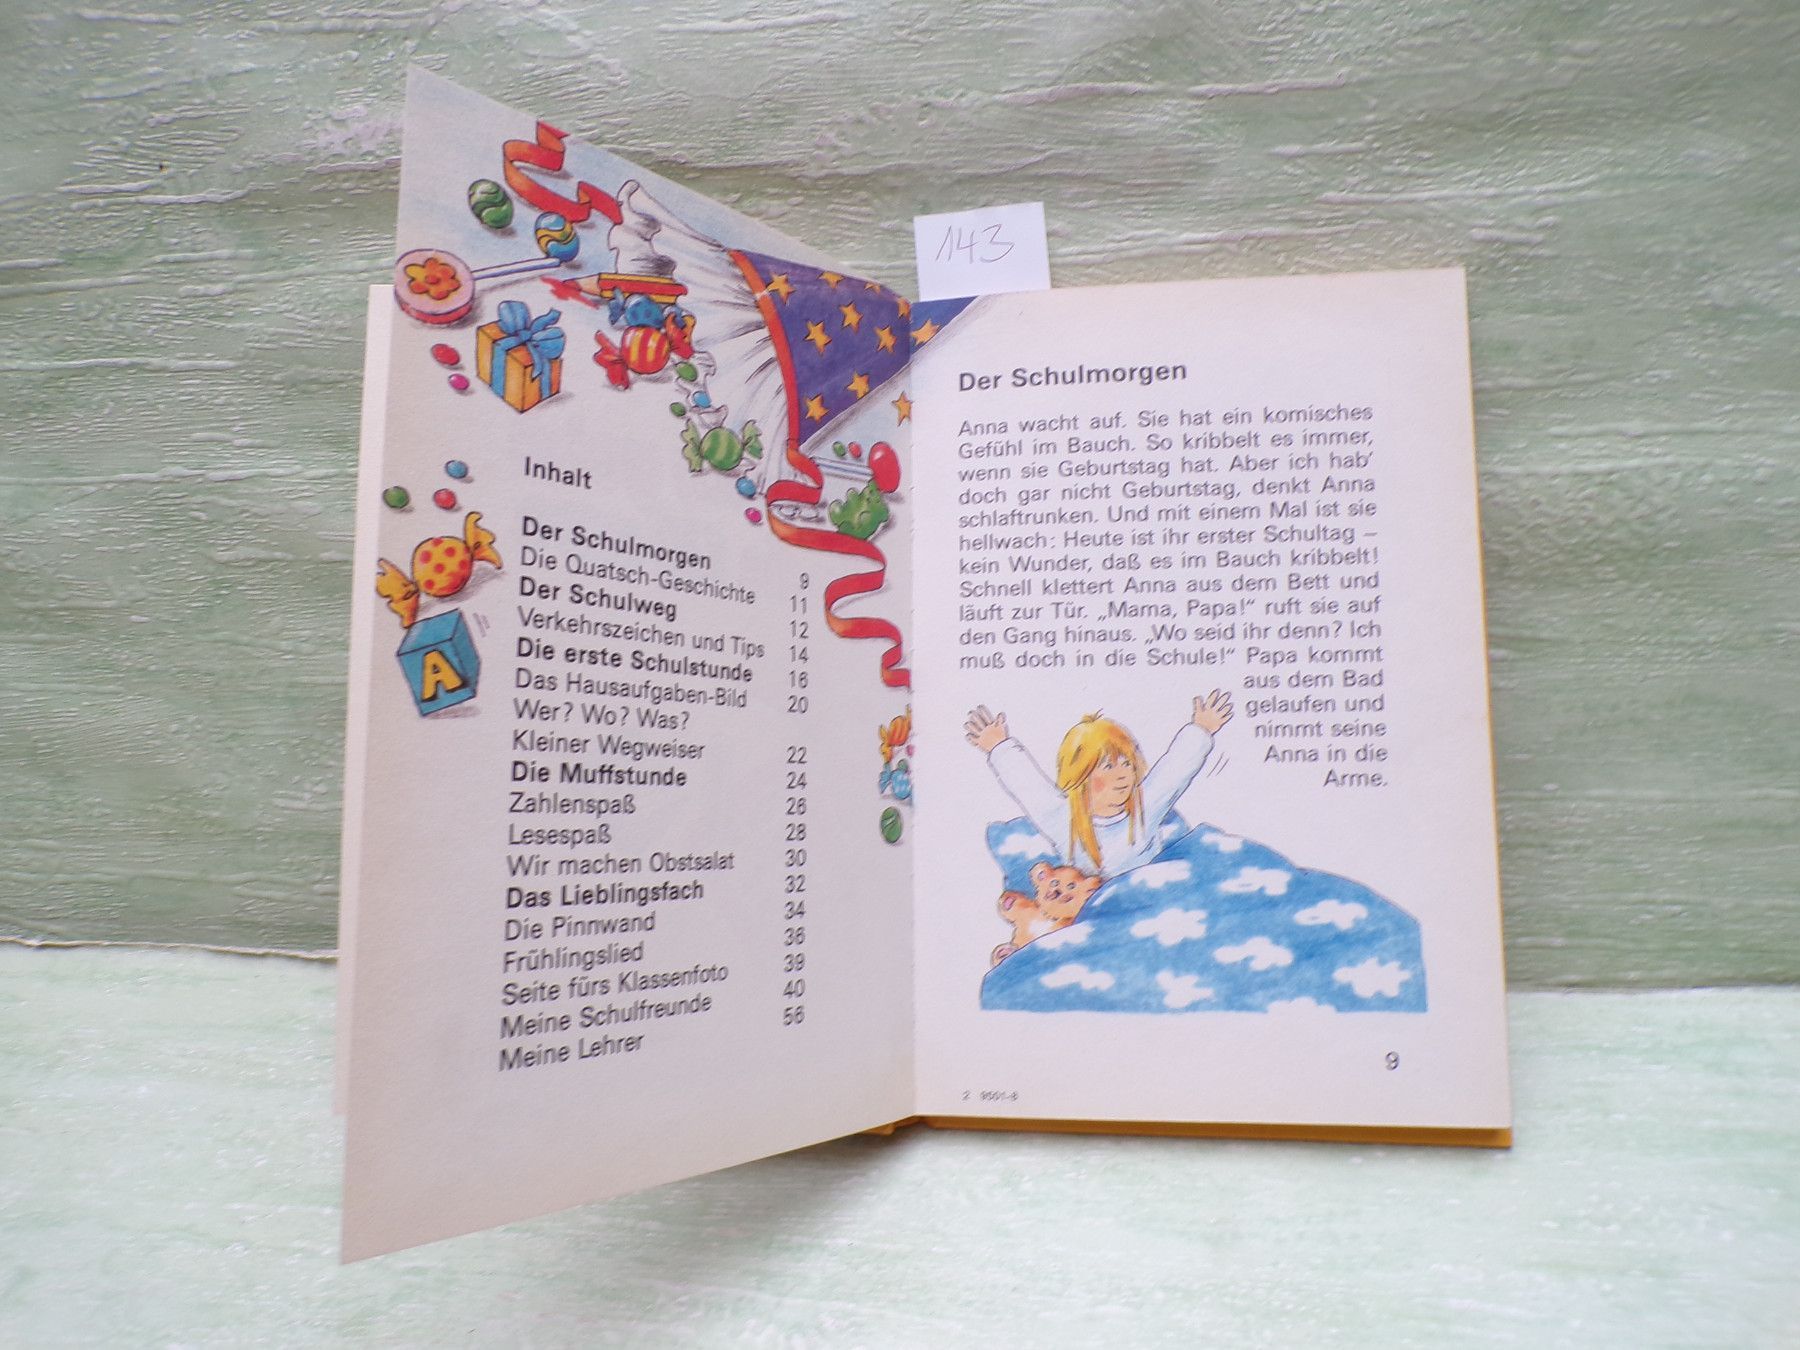 143
Inhalt
Der Schulmorgen 9
Die Quatsch-Geschichte 11
Der Schulweg 12
Verkehrszeichen und Tips 14
Die erste Schulstunde 16
Das Hausaufgaben-Bild 20
Wer? Wo? Was?
Kleiner Wegweiser 22
Die Muffstunde 24
Zahlenspaß 26
Lesespaß 28
Wir machen Obstsalat 30
Das Lieblingsfach 32
Die Pinnwand 34
Frühlingslied 36
Seite fürs Klassenfoto 39
Meine Schulfreunde 40
Meine Lehrer 56
A
Der Schulmorgen
Anna wacht auf. Sie hat ein komisches
Gefühl im Bauch. So kribbelt es immer,
wenn sie Geburtstag hat. Aber ich hab'
doch gar nicht Geburtstag, denkt Anna
schlaftrunken. Und mit einem Mal ist sie
hellwach: Heute ist ihr erster Schultag –
kein Wunder, daß es im Bauch kribbelt!
Schnell klettert Anna aus dem Bett und
läuft zur Tür. „Mama, Papa!“ ruft sie auf
den Gang hinaus. „Wo seid ihr denn? Ich
muß doch in die Schule!“ Papa kommt
aus dem Bad
gelaufen und
nimmt seine
Anna in die
Arme.
9
2